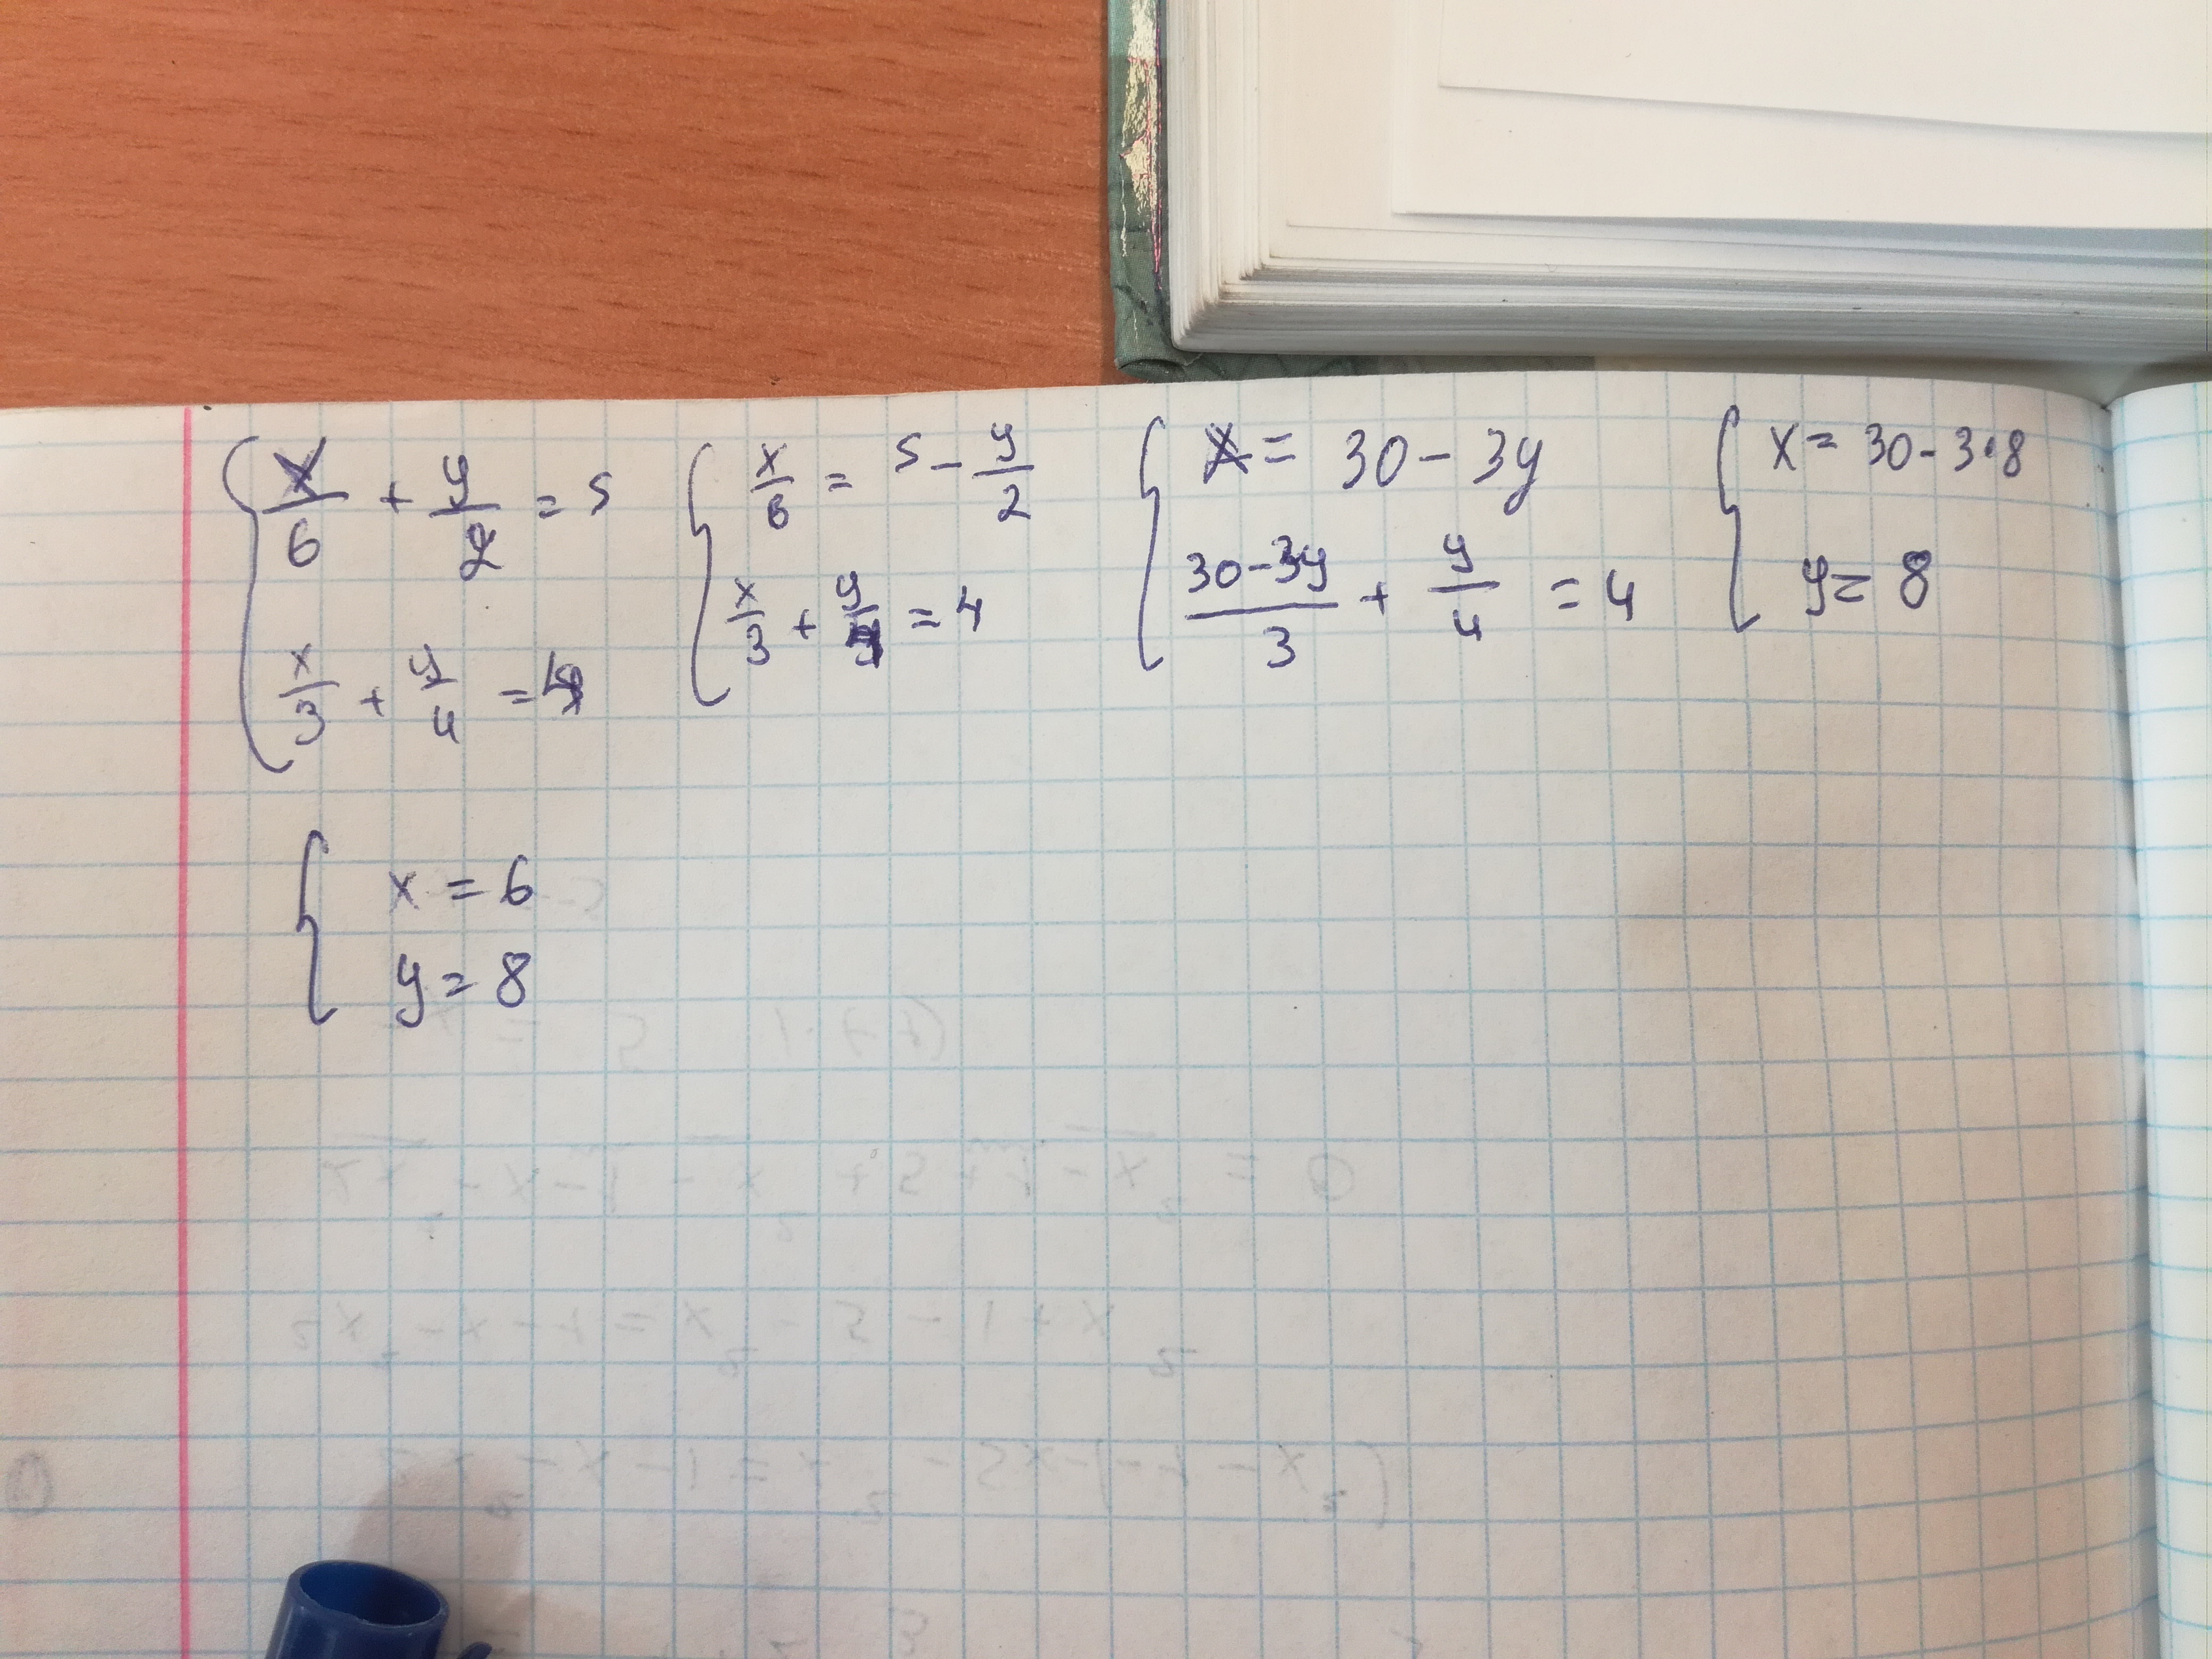 { x/6 + y/2 = 5
x/3 + y/4 = 4
{ x/6 = 5 - y/2
x/3 + y/4 = 4
{ x = 30 - 3y
(30-3y)/3 + y/4 = 4
{ x = 30 - 3·8
y = 8
{ x = 6
y = 8